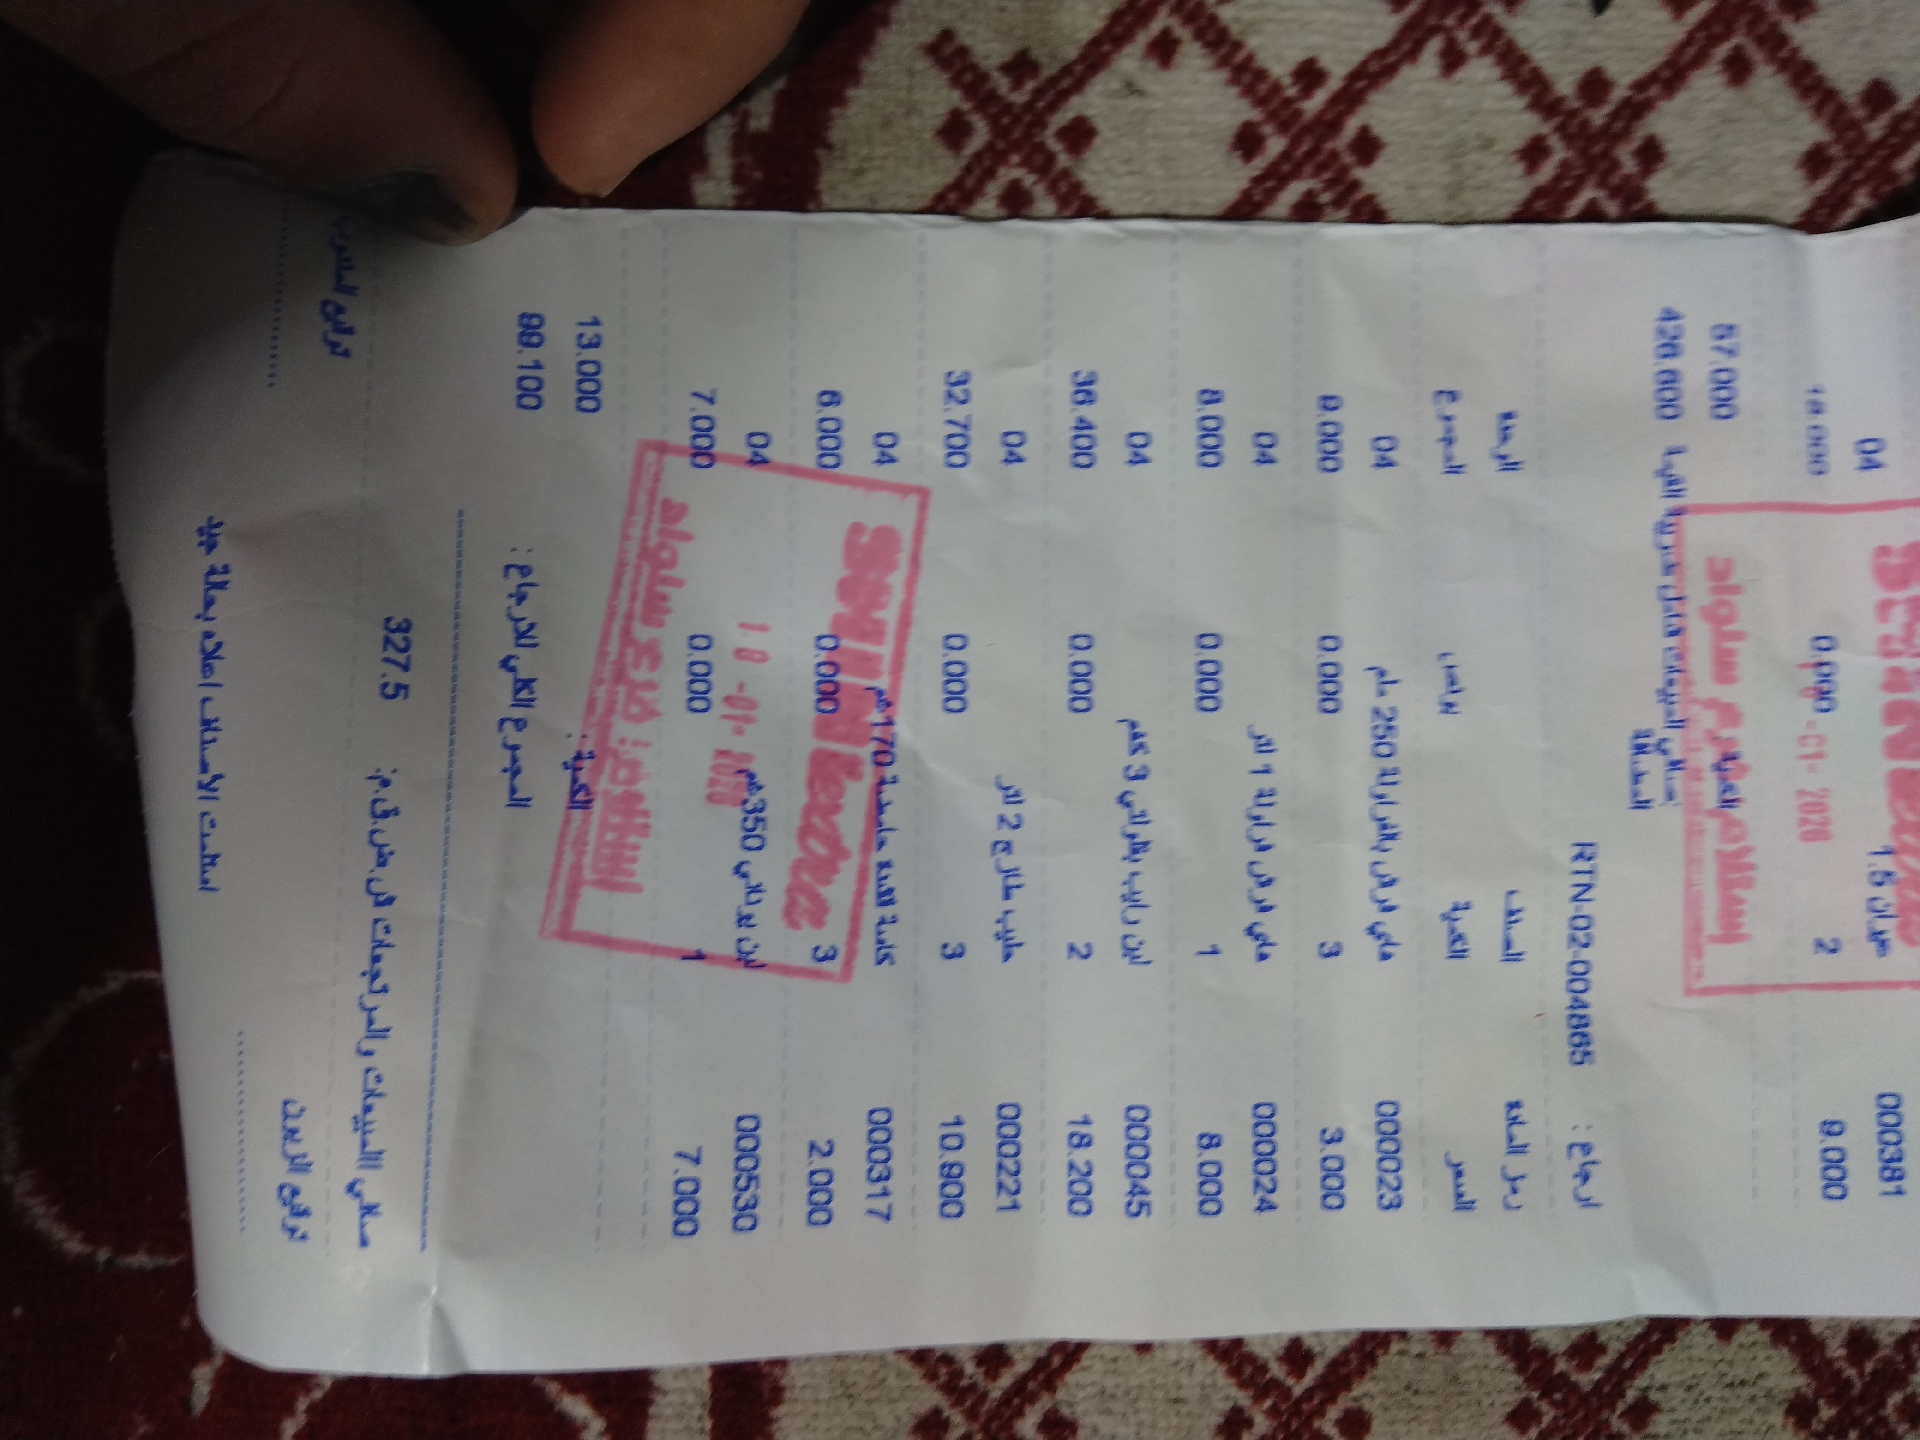 000381 عيران 1.5 04
9.000 2 0.000 18.000
الكمية : 57.000
صافي المبيعات شامل ضريبة القيمة 426.600
المضافة
ارجاع : RTN-02-004865
رمز المادة الصنف الوحدة
السعر الكمية بونص المجموع
000023 ملم 250 04
3.000 3 0.000 9.000
000024 1 لتر 04
8.000 1 0.000 8.000
000045 لبن رايب 3 كغم 04
18.200 2 0.000 36.400
000221 حليب طازج 2 لتر 04
10.900 3 0.000 32.700
000317 170غم 04
2.000 3 0.000 6.000
000530 لبن يوناني 350غم 04
7.000 1 0.000 7.000
الكمية : 13.000
المجموع الكلي للارجاع : 99.100
صافي المبيعات والمرتجعات ش.ض.ق.م: 327.5
توقيع الزبون توقيع المندوب
استلمت الأصناف اعلاه بحالة جيدة
استلام فرع سلواد
استلام: فرع سلواد